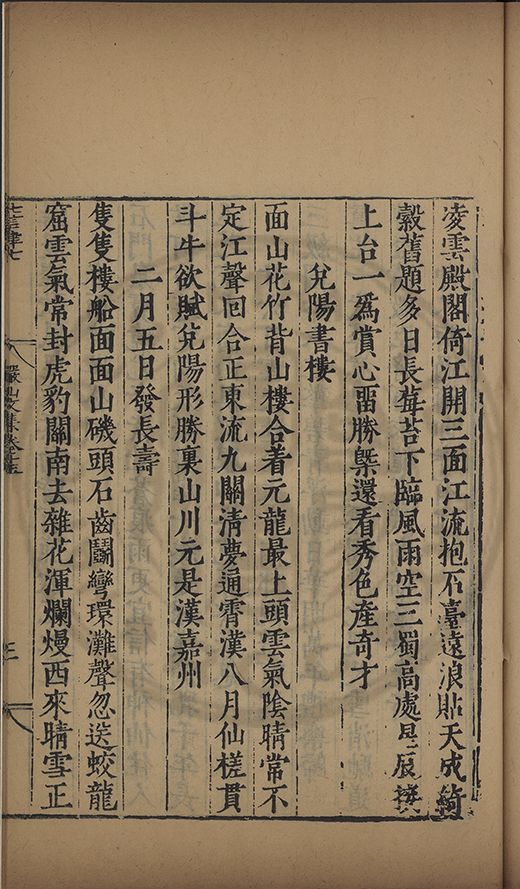 凌雲殿閣倚江開三面江流抱石臺遠浪貼天成綺
縠舊題多日長莓苔下臨風雨空三蜀高處星辰
上台一爲賞心畱勝槩還看秀色產奇才
兌陽書樓
面山花竹背山樓合着元龍最上頭雲氣陰晴常不
定江聲回合正東流九關淸夢通霄漢八月仙槎貫
斗牛欲賦兌陽形勝裏山川元是漢嘉州
二月五日發長壽
隻隻樓船面面山磯頭石齒鬬彎環灘聲忽送蛟龍
窟雲氣常封虎豹關南去雜花渾爛熳西來晴雪正
七言律七
卷五